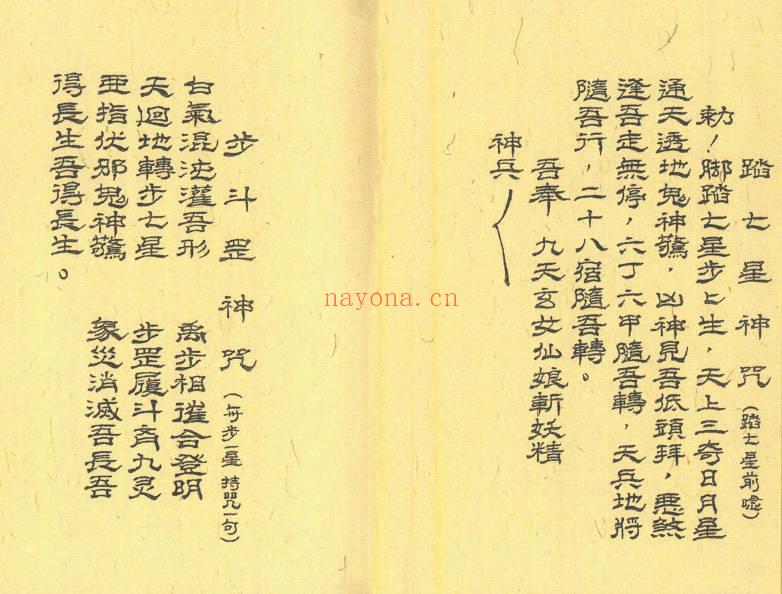 踏七星神咒（踏七星前唸）
勅！腳踏七星步ヒ生，天上三奇日月星
通天透地鬼神驚，凶神見吾低頭拜，惡煞
逢吾走無停，六丁六甲隨吾轉，天兵地將
隨吾行，二十八宿隨吾轉。
吾奉 九天玄女仙娘斬妖精
神兵
步斗罡神咒（每步一星 持咒一句）
白氣混沌灌吾形 禹步相催合登明
天迴地轉步七星 步罡履斗齊九灵
亜指伏邪鬼神驚 衆災消滅吾長吾
得長生吾得長生。
nayona.cn